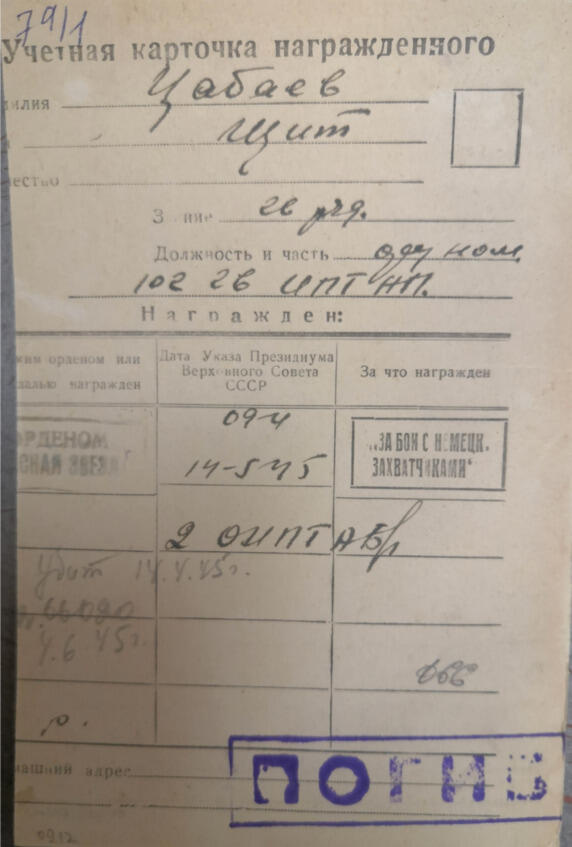 79/1
Учетная карточка награжденного
милия Цабаев
Щит
чество
Звание гв ряд.
Должность и часть оруд ном.
102 гв ИПТАП.
Награжден:
ким орденом или
далью награжден
Дата Указа Президиума
Верховного Совета
СССР
За что награжден
ОРДЕНОМ
АСНАЯ ЗВЕЗДА"
094
14-5-45
„ЗА БОИ С НЕМЕЦК.
ЗАХВАТЧИКАМИ"
2 ОИПТАБр
Убит 14.4.45г.
66090
4.6 45г.
р.
машний адрес
ПОГИБ
0912